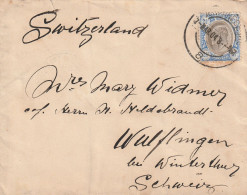 Switzerland
Mrs Mary Widmer
c/o. Herrn H. Hildebrandt
Wülflingen
bei Winterthur
Schweiz